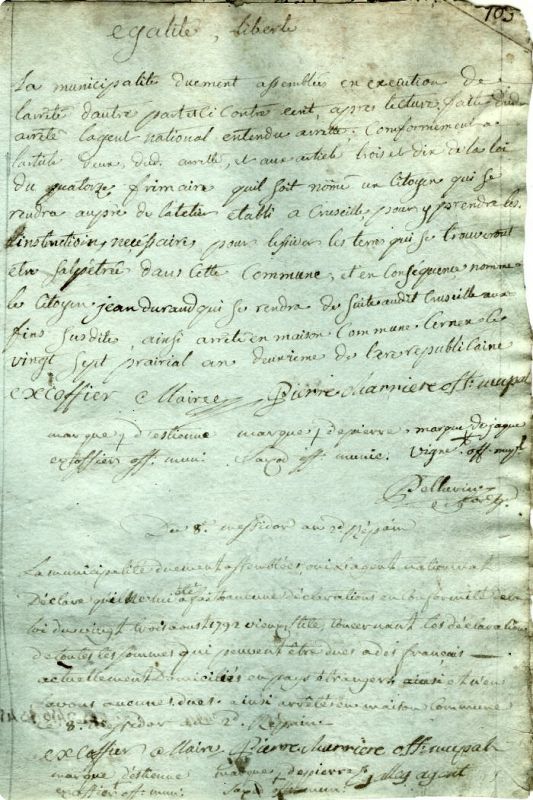 103
egalité, liberté
La municipalité duement assemblées en execution de
larrêté dautre part et ci contre ecrit, apres lecture faite dud.
arrêté lagent national entendu arrette. Comformement a
larticle deux, dud. arretté, et aux article trois et dix de la loi
du quatorze frimaire qu'il soit nômé un Citoyen qui se
rendra aupré de latelier établi a Cruseille pour y prendra les
instructions necessaire pour lessiver les teres qui se trouveront
etre salpétré dans cette Commune, et en Conséquence nomme
le Citoyen jean duraud qui se rendra de suite audit Cruseille aux
fins susdite, ainsi arrêté en maison Commune Cernex le
vingt sept prairial an deuxième de lere republicaine
excoffier Maire Pierre charriere off. mupal
marque d'estienne marque de pierre marque de jaque
excoffier off. muni. Saxod off. munie. Vigne off. mupl
Pellarin
Du 8. messidor an 2d Répain
La municipalité duement assemblées, oui lagent national
Déclare qu'il ne lui a été fait aucune déclarations en conformité de la
loi du vingt trois aoust 1792 vieux stile, concernant les déclarations
de toutes les sommes qui peuvent être dues a des français
actuellement Domiciliés en pays étrangers, ainsi et n'en
avons aucunes dues ainsi arrêté en maison commune
le 8. Messidor 2d. Répaine
excoffier Maire Pierre charriere off. mupal
marque d'estienne marque de pierre agent
excoffier off. muni. Saxod off. muni.